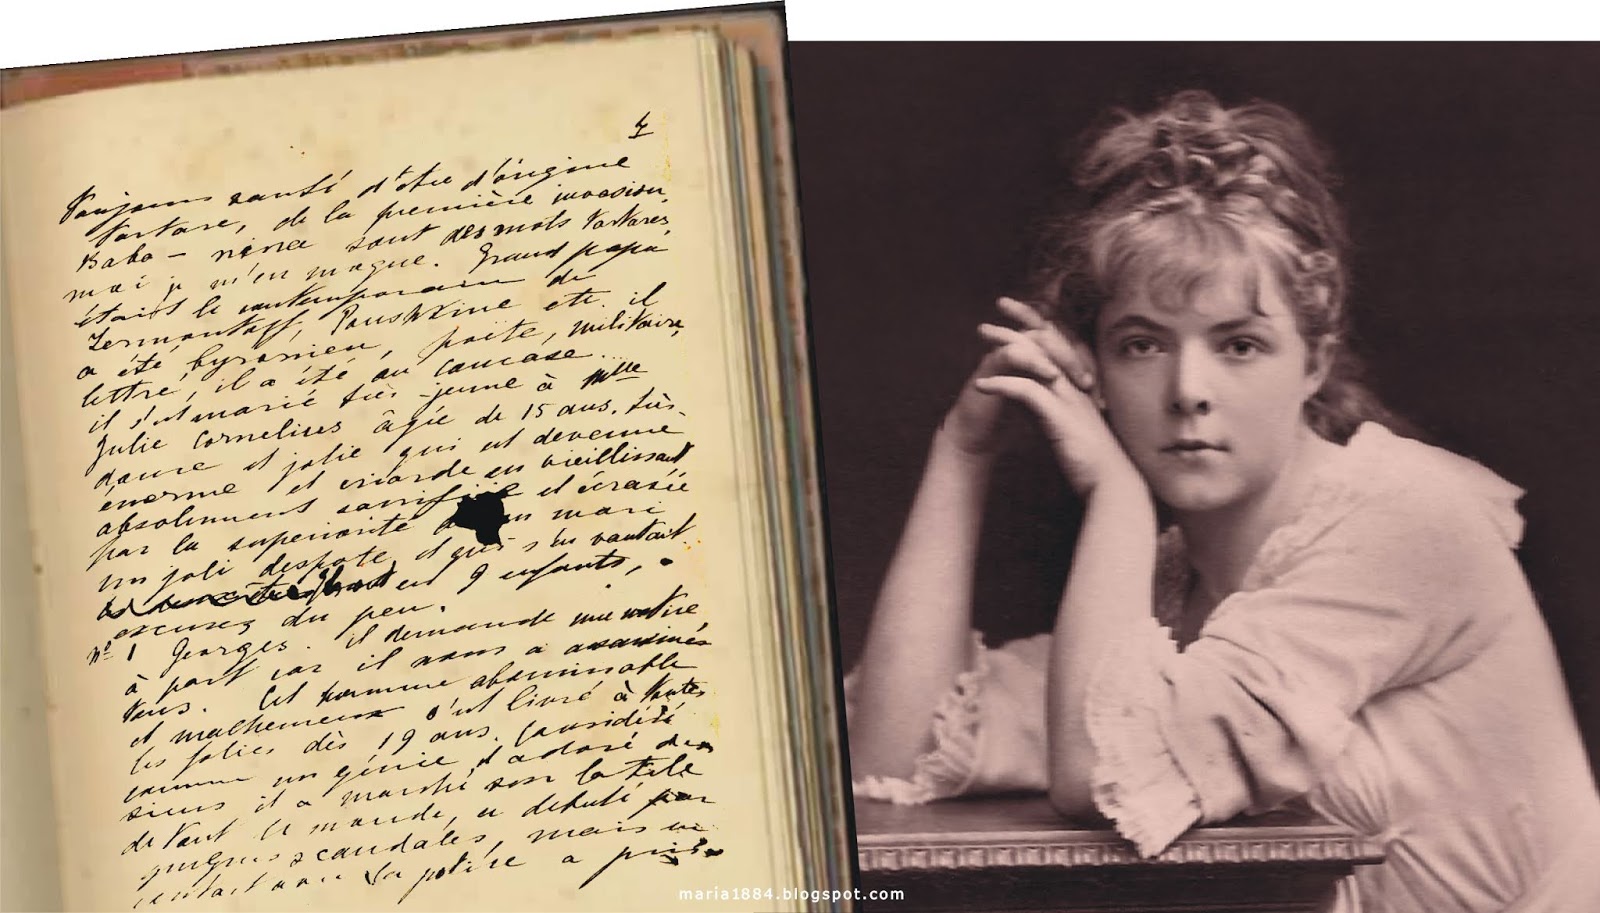 4
Toujours vanté d'être d'origine
tartare, de la première invasion,
Baba - nina sont des mots tartares,
moi je m'en moque. Grand papa
était le contemporain de
Lermontoff, Poushkine etc. il
a été byronien, poète, militaire,
lettré, il a été au Caucase...
il s'est marié très jeune à Mlle
Julie Cornelius âgée de 15 ans, très-
douce et jolie qui est devenue
énorme et criarde en vieillissant
absolument sacrifiée et écrasée
par la supériorité mari
un joli despote et qui s'en vantait.
en 9 enfants,
excusez du peu.
No 1 Georges. il demande une notice
à part car il nous a assassinés
tous. Cet homme abominable
et malheureux s'est livré à toutes
les folies dès 19 ans. Considéré
comme un génie et adoré des
siens il a marché sur la tête
devant le monde, a débuté par
quelques scandales, mais
la police a
maria1884.blogspot.com